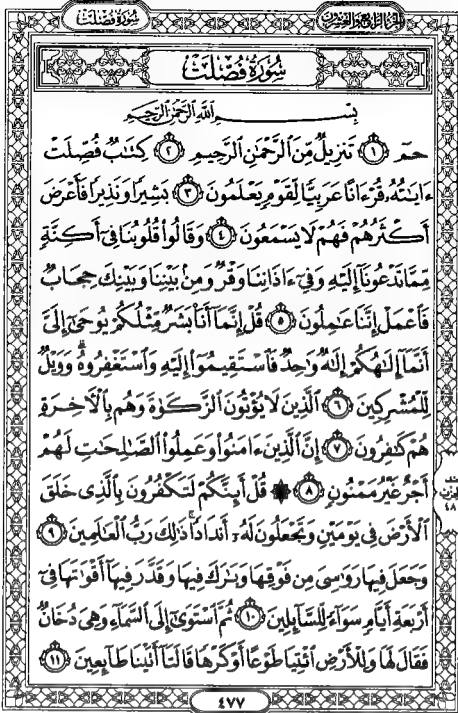 سُورَةُ فُصِّلَتْ
الجُزءُ الرَّابِعُ وَالعِشْرُونَ
سُورَةُ فُصِّلَتْ
بِسْمِ اللَّهِ الرَّحْمَٰنِ الرَّحِيمِ
حمٓ ١ تَنزِيلٌ مِّنَ ٱلرَّحْمَٰنِ ٱلرَّحِيمِ ٢ كِتَٰبٌ فُصِّلَتْ
ءَايَٰتُهُۥ قُرْءَانًا عَرَبِيًّا لِّقَوْمٍ يَعْلَمُونَ ٣ بَشِيرًا وَنَذِيرًا فَأَعْرَضَ
أَكْثَرُهُمْ فَهُمْ لَا يَسْمَعُونَ ٤ وَقَالُوا۟ قُلُوبُنَا فِىٓ أَكِنَّةٍ
مِّمَّا تَدْعُونَآ إِلَيْهِ وَفِىٓ ءَاذَانِنَا وَقْرٌ وَمِنۢ بَيْنِنَا وَبَيْنِكَ حِجَابٌ
فَٱعْمَلْ إِنَّنَا عَٰمِلُونَ ٥ قُلْ إِنَّمَآ أَنَا۠ بَشَرٌ مِّثْلُكُمْ يُوحَىٰٓ إِلَىَّ
أَنَّمَآ إِلَٰهُكُمْ إِلَٰهٌ وَٰحِدٌ فَٱسْتَقِيمُوٓا۟ إِلَيْهِ وَٱسْتَغْفِرُوهُ ۗ وَوَيْلٌ
لِّلْمُشْرِكِينَ ٦ ٱلَّذِينَ لَا يُؤْتُونَ ٱلزَّكَوٰةَ وَهُم بِٱلْءَاخِرَةِ
هُمْ كَٰفِرُونَ ٧ إِنَّ ٱلَّذِينَ ءَامَنُوا۟ وَعَمِلُوا۟ ٱلصَّٰلِحَٰتِ لَهُمْ
أَجْرٌ غَيْرُ مَمْنُونٍ ٨ ۞ قُلْ أَئِنَّكُمْ لَتَكْفُرُونَ بِٱلَّذِى خَلَقَ
ٱلْأَرْضَ فِى يَوْمَيْنِ وَتَجْعَلُونَ لَهُۥٓ أَندَادًا ۚ ذَٰلِكَ رَبُّ ٱلْعَٰلَمِينَ ٩
وَجَعَلَ فِيهَا رَوَٰسِىَ مِن فَوْقِهَا وَبَٰرَكَ فِيهَا وَقَدَّرَ فِيهَآ أَقْوَٰتَهَا فِىٓ
أَرْبَعَةِ أَيَّامٍ سَوَآءً لِّلسَّآئِلِينَ ١٠ ثُمَّ ٱسْتَوَىٰٓ إِلَى ٱلسَّمَآءِ وَهِىَ دُخَانٌ
فَقَالَ لَهَا وَلِلْأَرْضِ ٱئْتِيَا طَوْعًا أَوْ كَرْهًا قَالَتَآ أَتَيْنَا طَآئِعِينَ ١١
الحزب
٤٨
٤٧٧